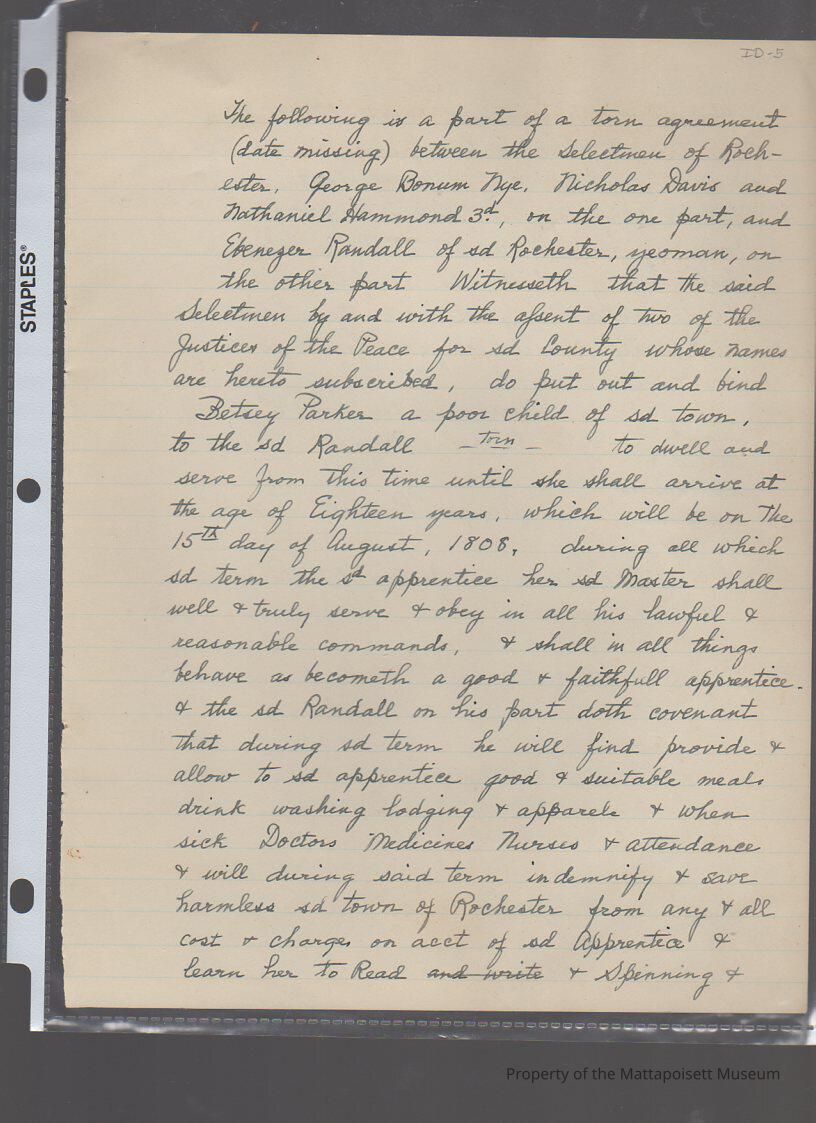 ID-5
The following is a part of a torn agreement
(date missing) between the Selectmen of Roch-
ester, George Bonum Nye, Nicholas Davis and
Nathaniel Hammond 3.d, on the one part, and
Ebenezer Randall of sd Rochester, yeoman, on
the other part Witnesseth that the said
Selectmen by and with the assent of two of the
Justices of the Peace for sd County whose names
are hereto subscribed, do put out and bind
Betsey Parker a poor child of sd town,
to the sd Randall - torn - to dwell and
serve from this time until she shall arrive at
the age of Eighteen years, which will be on the
15TH day of August, 1808, during all which
sd term the sd apprentice her sd Master shall
well & truly serve & obey in all his lawful &
reasonable commands, & shall in all things
behave as becometh a good & faithfull apprentice.
& the sd Randall on his part doth covenant
that during sd term he will find provide &
allow to sd apprentice good & suitable meals
drink washing lodging & apparele & when
sick Doctors Medicines Nurses & attendance
& will during said term indemnify & save
harmless sd town of Rochester from any & all
cost & charges on acct of sd Apprentice &
learn her to Read and write & Spinning &
STAPLES®
Property of the Mattapoisett Museum